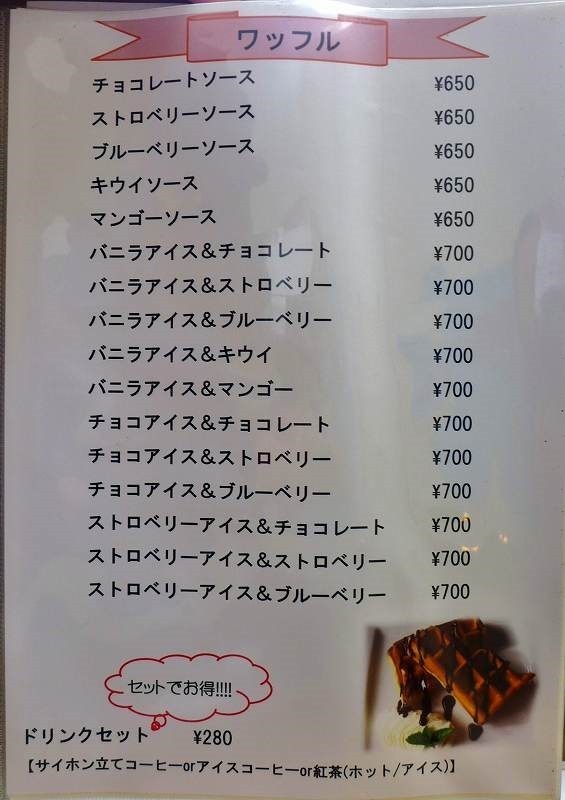 ワッフル
チョコレートソース ¥650
ストロベリーソース ¥650
ブルーベリーソース ¥650
キウイソース ¥650
マンゴーソース ¥650
バニラアイス&チョコレート ¥700
バニラアイス&ストロベリー ¥700
バニラアイス&ブルーベリー ¥700
バニラアイス&キウイ ¥700
バニラアイス&マンゴー ¥700
チョコアイス&チョコレート ¥700
チョコアイス&ストロベリー ¥700
チョコアイス&ブルーベリー ¥700
ストロベリーアイス&チョコレート ¥700
ストロベリーアイス&ストロベリー ¥700
ストロベリーアイス&ブルーベリー ¥700
セットでお得!!!!
ドリンクセット ¥280
【サイホン立てコーヒーorアイスコーヒーor紅茶(ホット/アイス)】